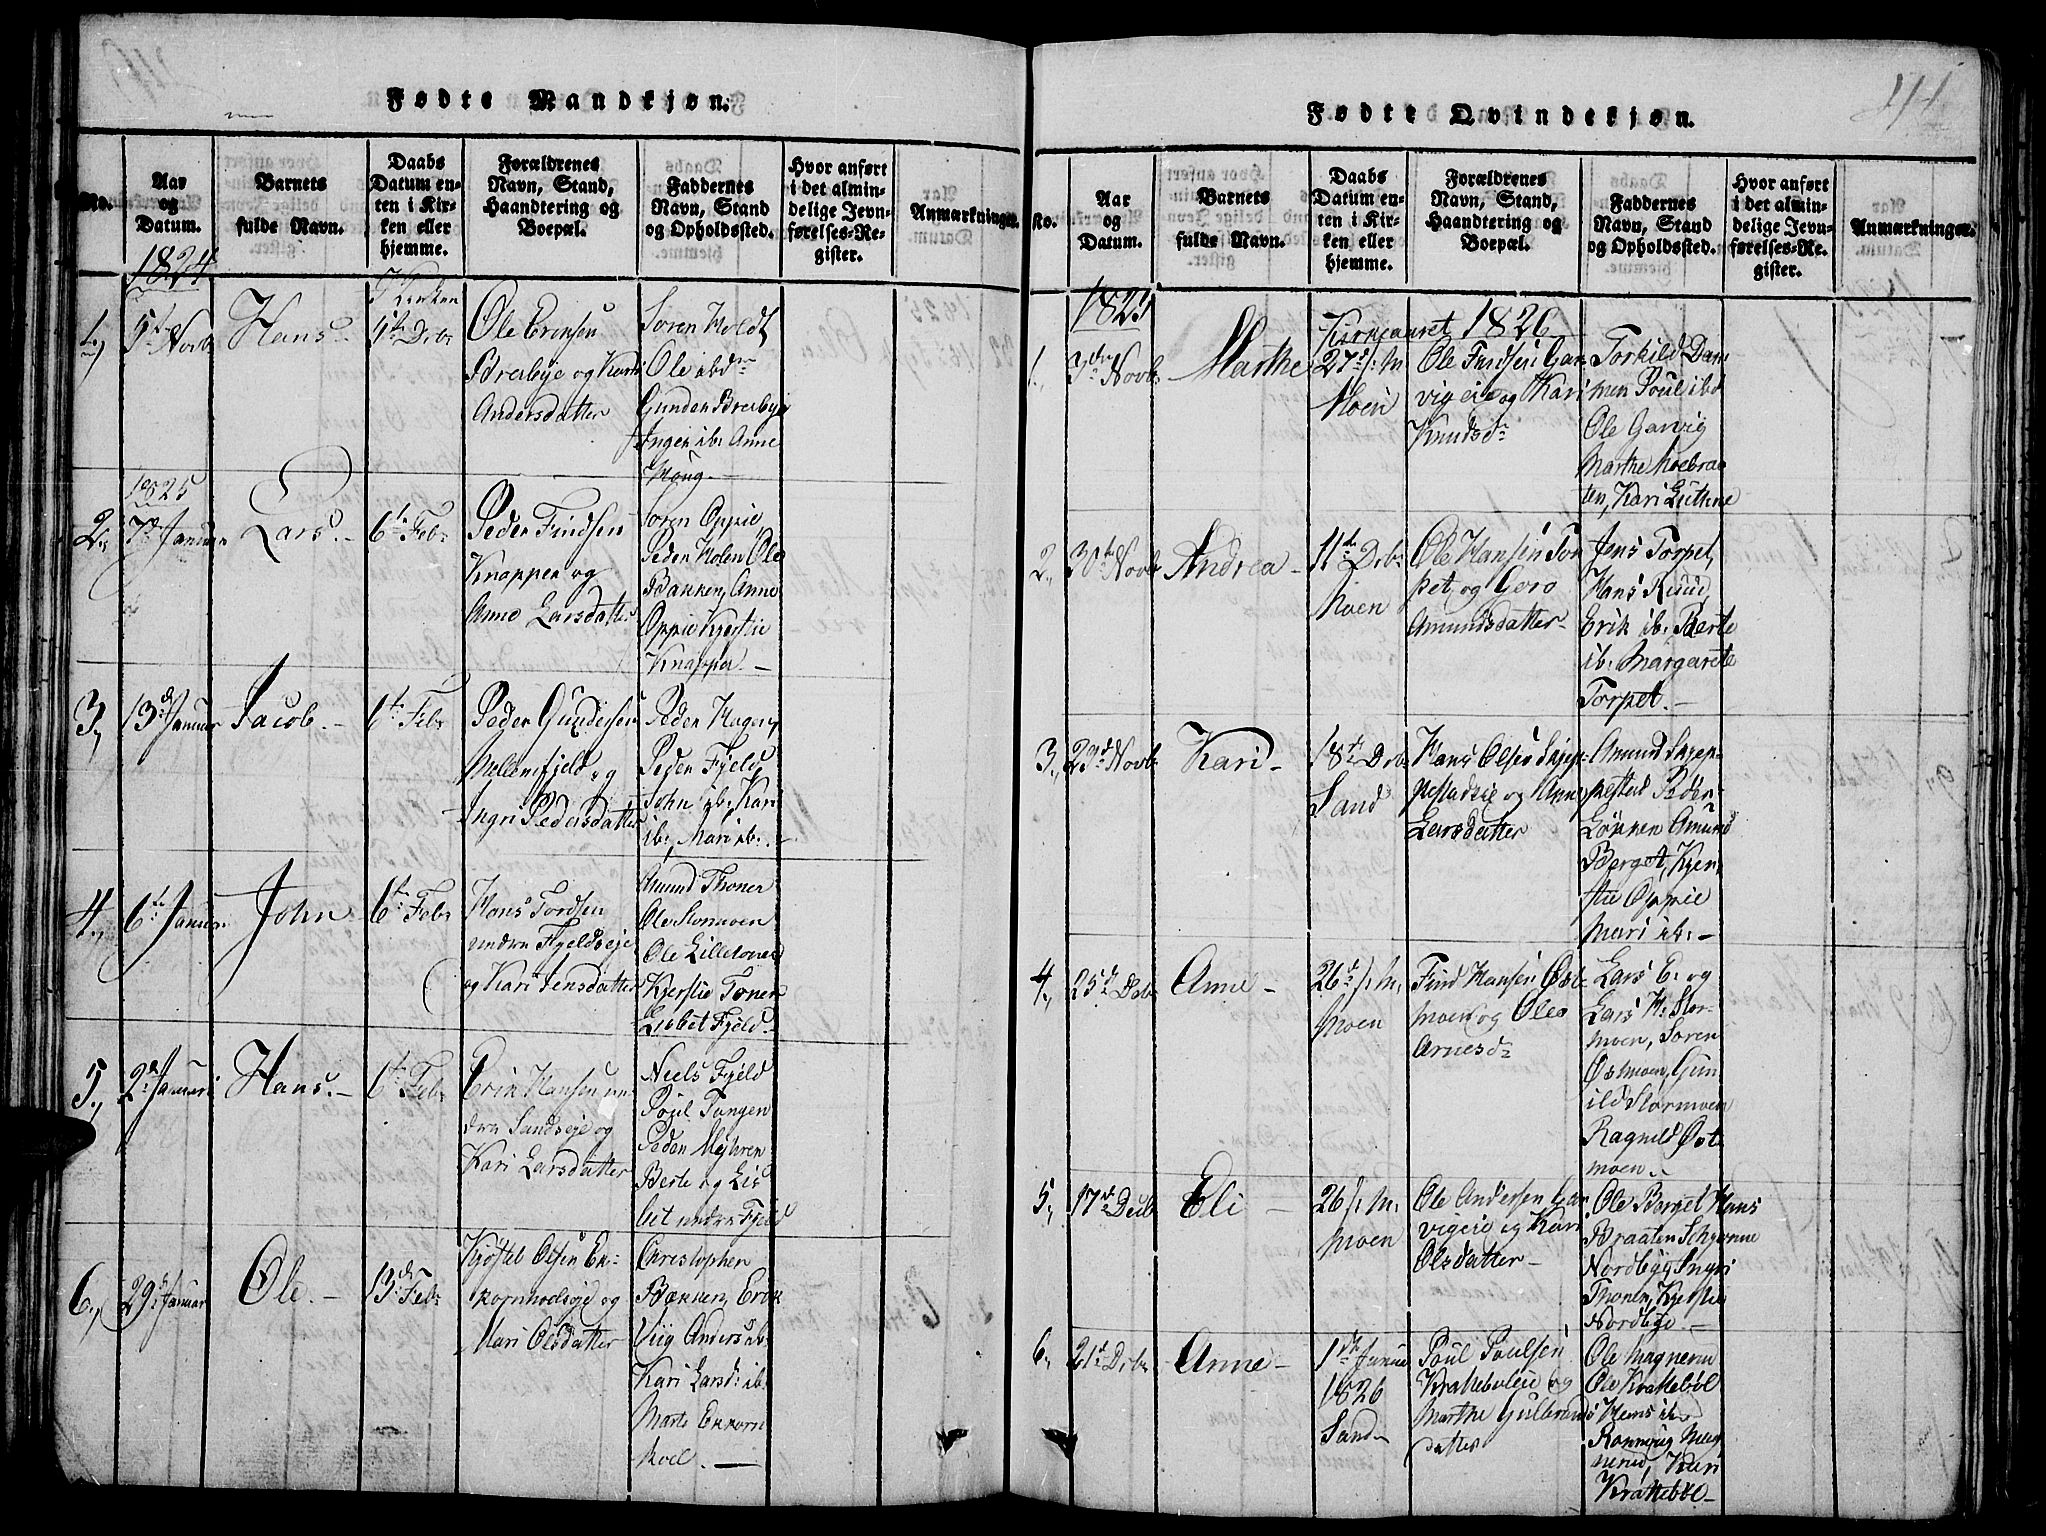 Fødte Mandkjøn.
No.
Aar
og
Datum.
Barnets
fulde Navn.
Daabs
Datum en-
ten i Kir-
ken eller
hjemme.
Forældrenes
Navn, Stand,
Haandtering og
Boepæl.
Faddernes
Navn, Stand
og Opholdssted.
Hvor anført
i det almin-
delige Jevn-
førelses-Re-
gister.
Anmærkninger.
1824
I Kirken
1.,
5t Novb
Hans
5t Decbr
Ole
Brerbye og Kari
Andersdatter
Soren Moldt
Ole ibdm
Gunder Brerbye
Inger ib: Anne
Houg.
1825
2.,
7de Januar
Lars.
6t Febr
Peder Findsen
Knapper og
Anne Larsdatter
Soren Oppie,
Peder Holen Ole
Bakken, Anne
Oppie Kjerstie
Knapper.
3.,
13de Januar
Jacob.
6t Febr
Peder Gundersen
Mellemfjeld og
Ingri Pedersdatter
Peder Hagen,
Peder Fjeld
John ib: Kari
ib:, Mari ib:.
4.,
6te Januar
John
6t Febr
Hans Tordsen
nedre Fjeldseje
og Kari Jensdatter
Amund Thoner
Ole Stormoen
Ole Lilletoner
Kjerstie Toner
Lisbet Fjeld.
5.,
2d Januari
Hans.
6t Febr
Erik Hansen ne-
dre Sandseje og
Kari Larsdatter
Niels Fjeld
Poul Tangen
Peder Mejhren
Berte og Lis
bet nedre Fjeld
6.,
29d Januar
Ole.
13de Febr
Kjøstel Olsen Ek-
kornhodseje og
Mari Olsdatter
Christopher
Bakken, Erik
Viig Anders ib:
Kari Larsd: ib:
Marte Ekkorn
hoel.
Fødte Qvindekjøn.
No.
Aar
og
Datum.
Barnets
fulde Navn.
Daabs
Datum en-
ten i Kir-
ken eller
hjemme.
Forældrenes
Navn, Stand,
Haandtering og
Boepæl.
Faddernes
Navn, Stand
og Opholdssted.
Hvor anført
i det almin-
delige Jevn-
førelses-Re-
gister.
Anmærkninger.
1825
Kirkeaaret 1826
1.,
3de Novbr
Marthe
27d
Moen
Ole Findsen Gar
vig eie og Kari
Knudsdr
Torkild Dam
men Poul ibd
Ole Garvig
Marthe Moebraa
ten, Kari Luthne
2.,
30te Novbr
Andrea
11te Decbr
Moen
Ole Hansen Tor
pet og Goro
Amundsdatter
Jens Torpet,
Hans Ruud,
Erik ib: Berte
ib: Margarete
Torpet.
3.,
29d Novbr
Kari
18te Decbr
Sand
Hans Olsen Skjep-
pestadeie og Anne
Larsdatter
Amund Skjep-
pestad Peder
Løkken Amund
Berget, Kjer-
stie Oppie
Mari ib:
4.,
25d Decbr
Anne
26d
Moen
Find Hansen Øst-
moen og Oleo
Arnesdr
Lars E. og
Lars H: Stor-
moen, Soren
Østmoen, Gun
ild Stormoen
Ragnild Øst
moen.
5.,
17de Decb
Eli
26
Moen
Ole Andersen Gar
vigeie og Kari
Olsdatter
Ole Berget Hans
Braaten
Nordbye Ingri
Thoner, Kjerstie
Nordbye
6.,
21d Decbr
Anne
1ste Januar
1826
Sand
Poul Poulsen
Krattebøleie og
Marthe Gulbrands
datter
Ole Magnerud
Ole Krattebøl
Hans ibd
Ronnaug Mag
nerud, Kari
Krattebøl